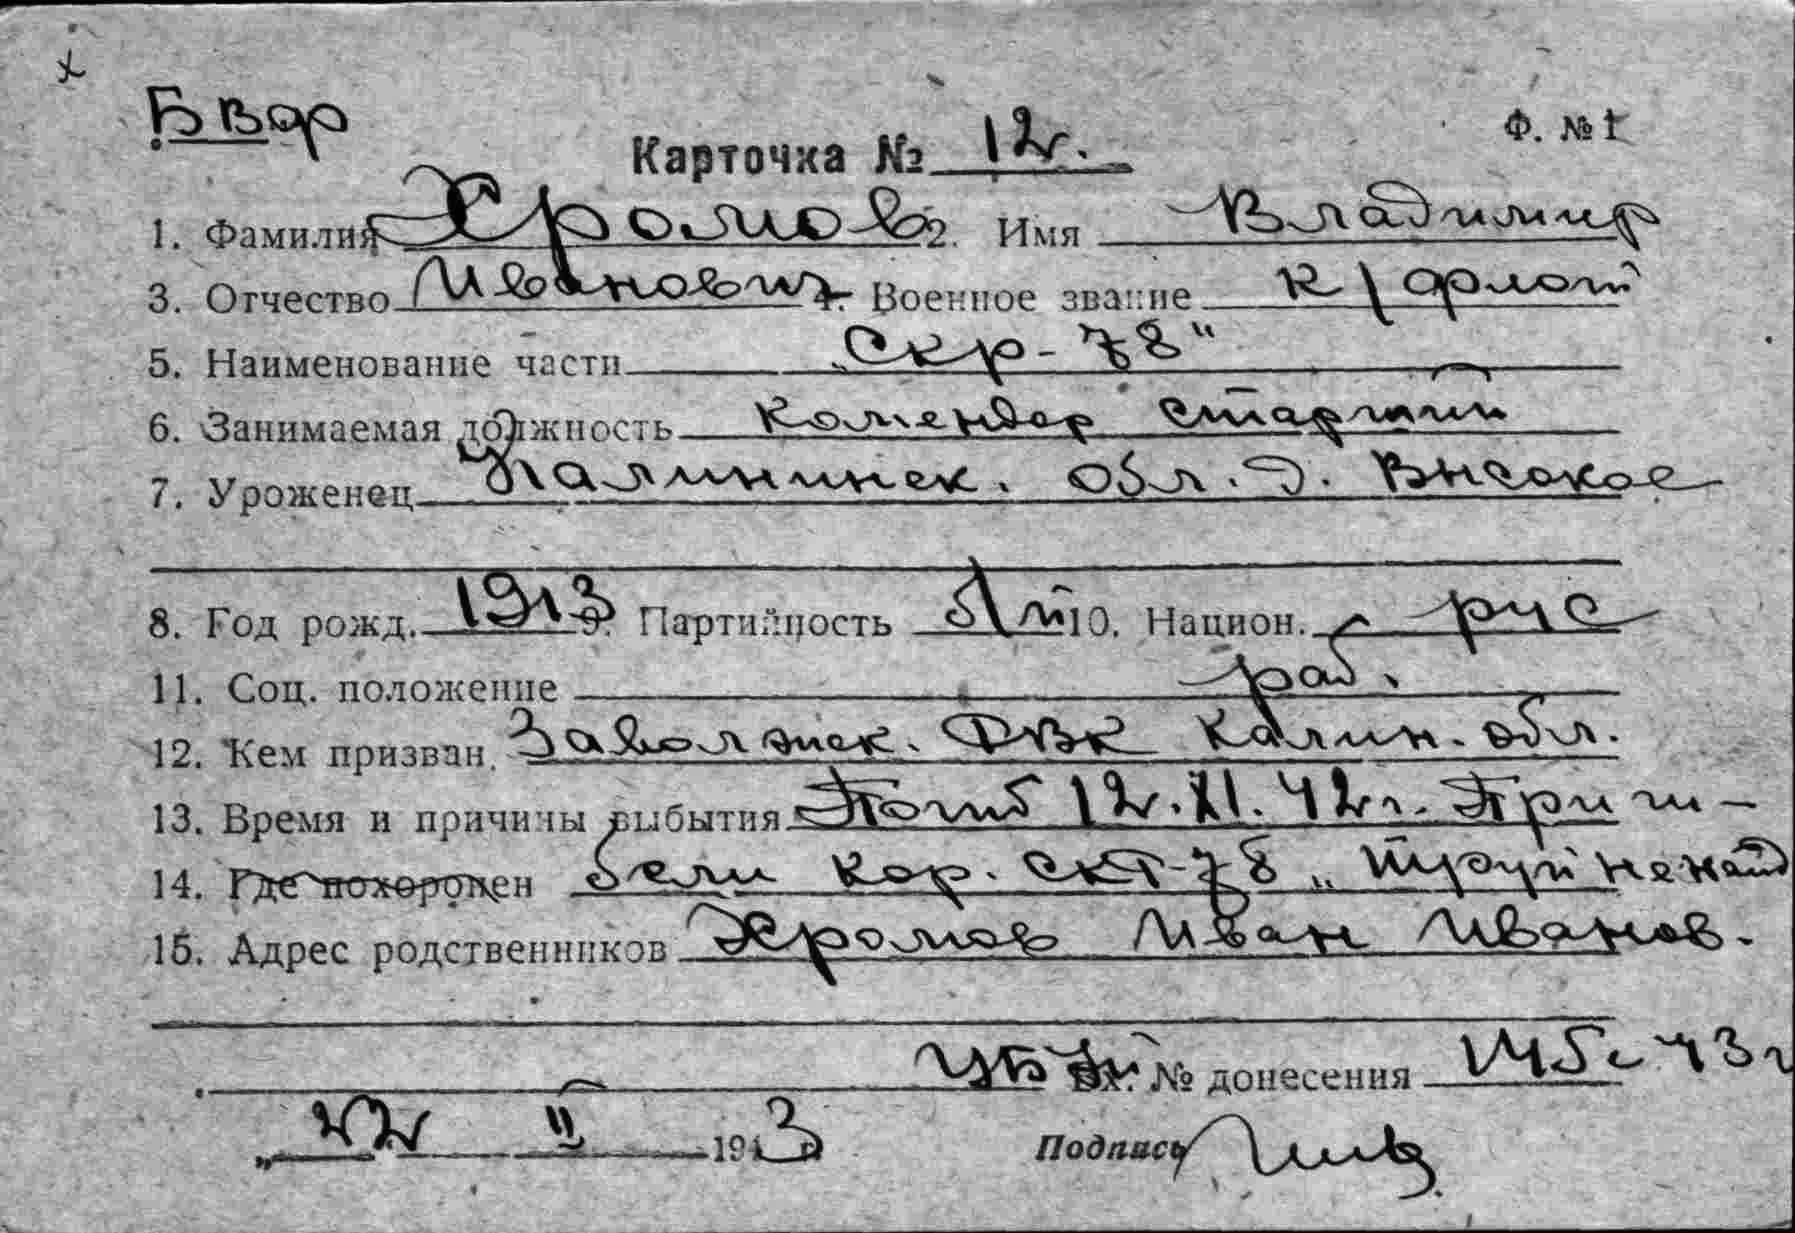 х
Бвф
Ф. № 1
Карточка № 12.
1. Фамилия Хромов 2. Имя Владимир
3. Отчество Иванович 4. Военное звание к/флот
5. Наименование части „Скр-78"
6. Занимаемая должность комендор старший
7. Уроженец Калининск. обл. д. Высокое
8. Год рожд. 1913 9. Партийность б/п 10. Национ. рус
11. Соц. положение раб.
12. Кем призван Заволжск. РВК Калин. обл.
13. Время и причины выбытия Погиб 12.XI.42г. При ги-
14. Где похоронен бели кор. СКР-78 „ труп не найд
15. Адрес родственников Хромов Иван Иванов.
Вх. № донесения 1145с 43г
„22 II 1943 г.
Подпись